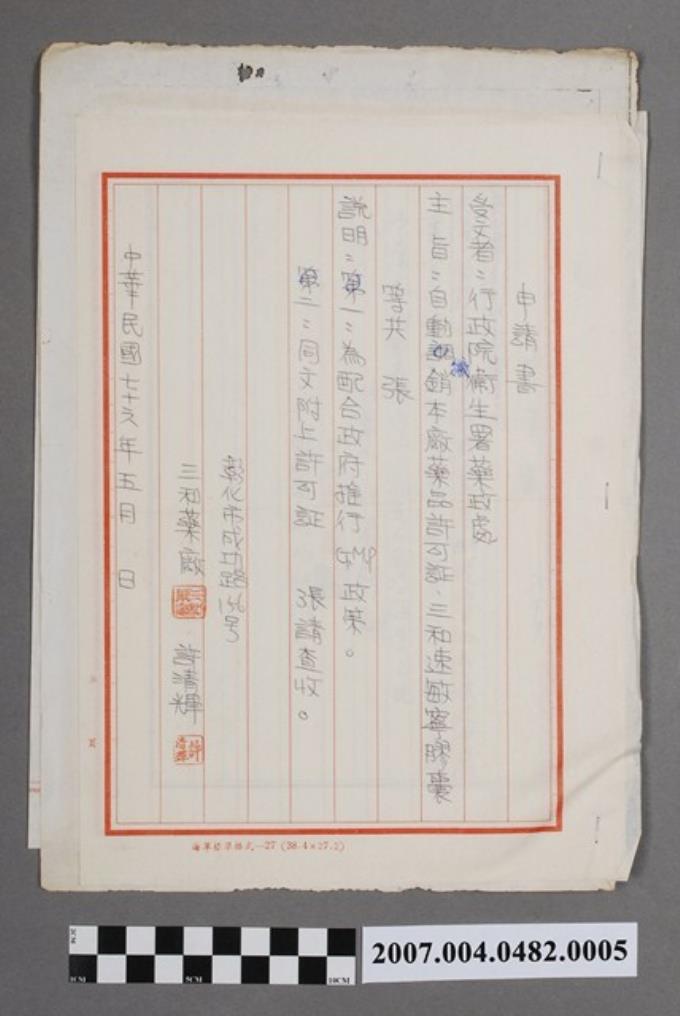 申請書
受文者：行政院衛生署藥政處
主　旨：自動繳銷本廠藥品許可証．三和速敏寧膠囊
等共　張
說明：第一：為配合政府推行GMP政策。
第二：同文附上許可証　　張請查收。
彰化市成功路156号
三和藥廠　許清輝
中華民國七十六年五月　日
27 (38.4×27.2)
2CM
1CM
5CM
10CM
2007.004.0482.0005